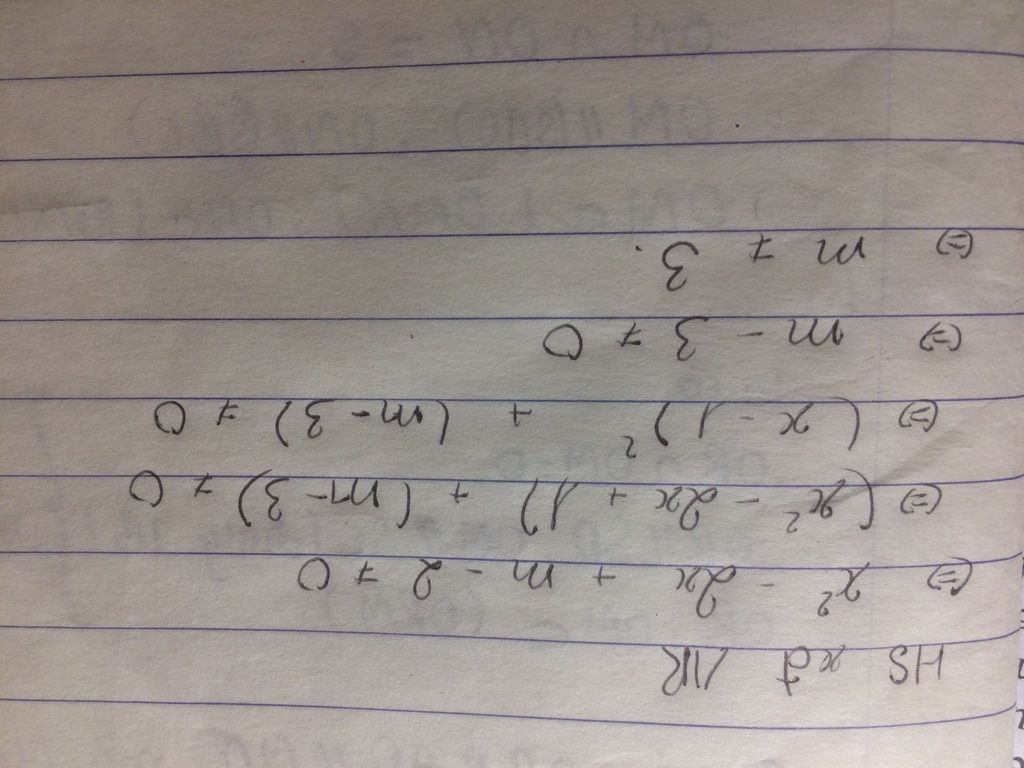 HS xđ /IR
(=) x² - 2x + m - 2 ≠ 0
(=) (x² - 2x + 1) + (m-3) ≠ 0
(=) (x - 1)² + (m-3) ≠ 0
(=) m - 3 ≠ 0
(=) m ≠ 3.